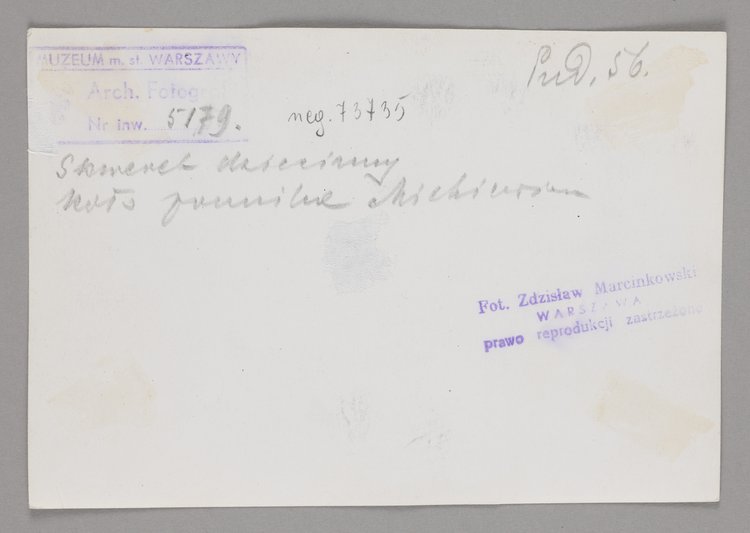 MUZEUM m. st. WARSZAWY
Arch. Fotogr.
Nr inw. 5179.
neg. 73735
PnD. 56.
Skwerek dziecinny
koło pomnika Mickiewicza
Fot. Zdzisław Marcinkowski
WARSZAWA
prawo reprodukcji zastrzeżone